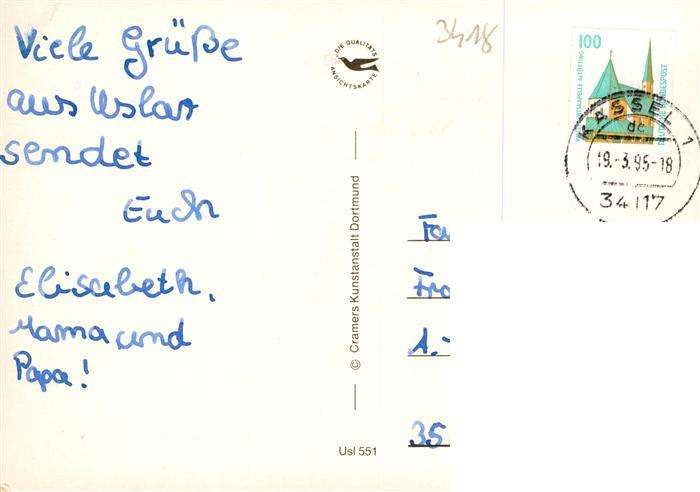 Viele Grüße
aus Uslar
sendet
Euch
Elisabeth,
Mama und
Papa!
DIE QUALITÄTS
ANSICHTSKARTE
© Cramers Kunstanstalt Dortmund
Usl 551
3418
100
WALLFAHRTSKAPELLE ALTÖTTING
DEUTSCHE BUNDESPOST
KASSEL 1
dc
19.-3.95-18
34117
Fa
Fr
1.-
35